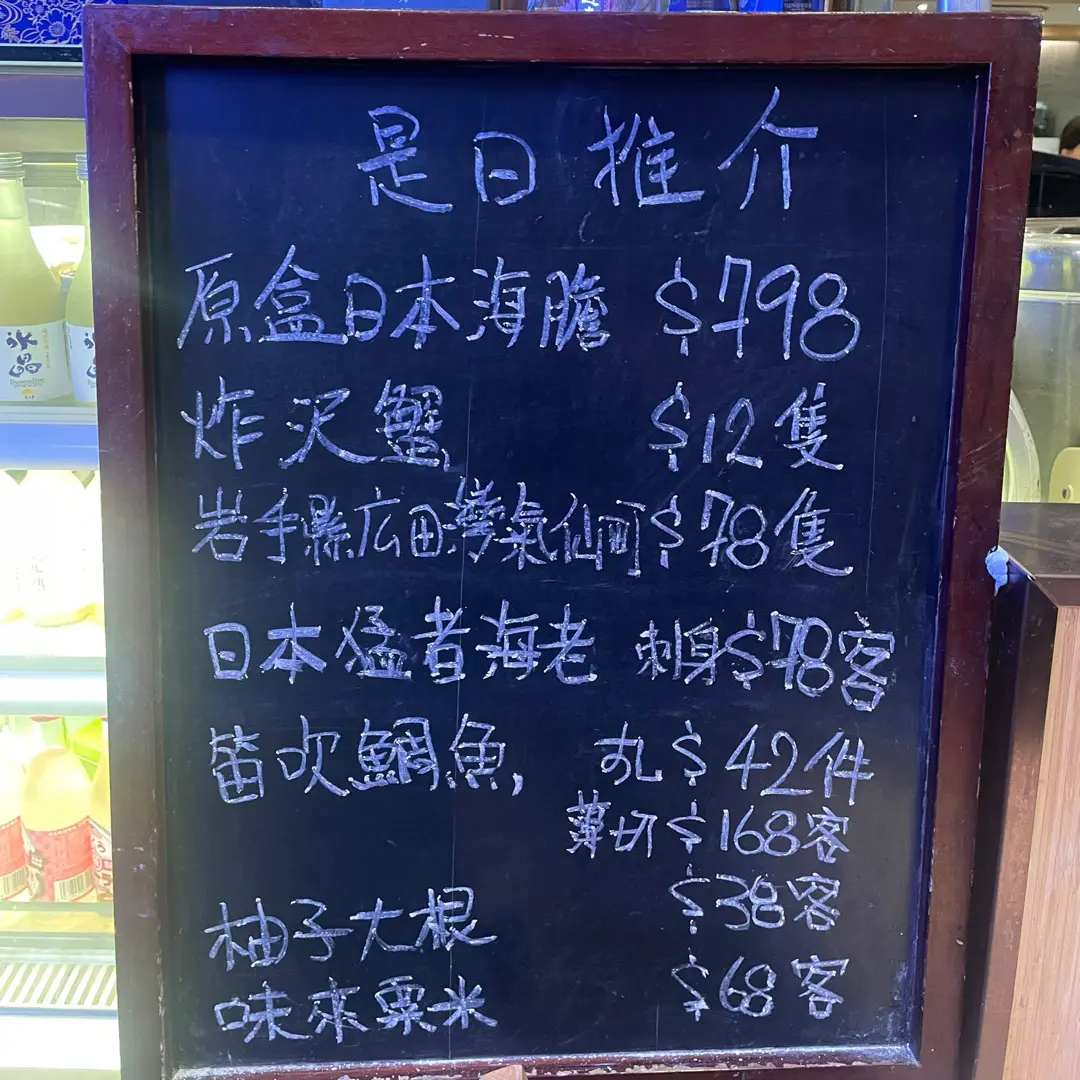 是日推介
原盒日本海膽 $798
炸沢蟹 $12隻
岩手縣広田灣氣仙町 $78隻
日本猛者海老 刺身$78客
笛吹鯛魚, 丸$42件
薄切$168客
柚子大根 $38客
味來粟米 $68客
氷晶